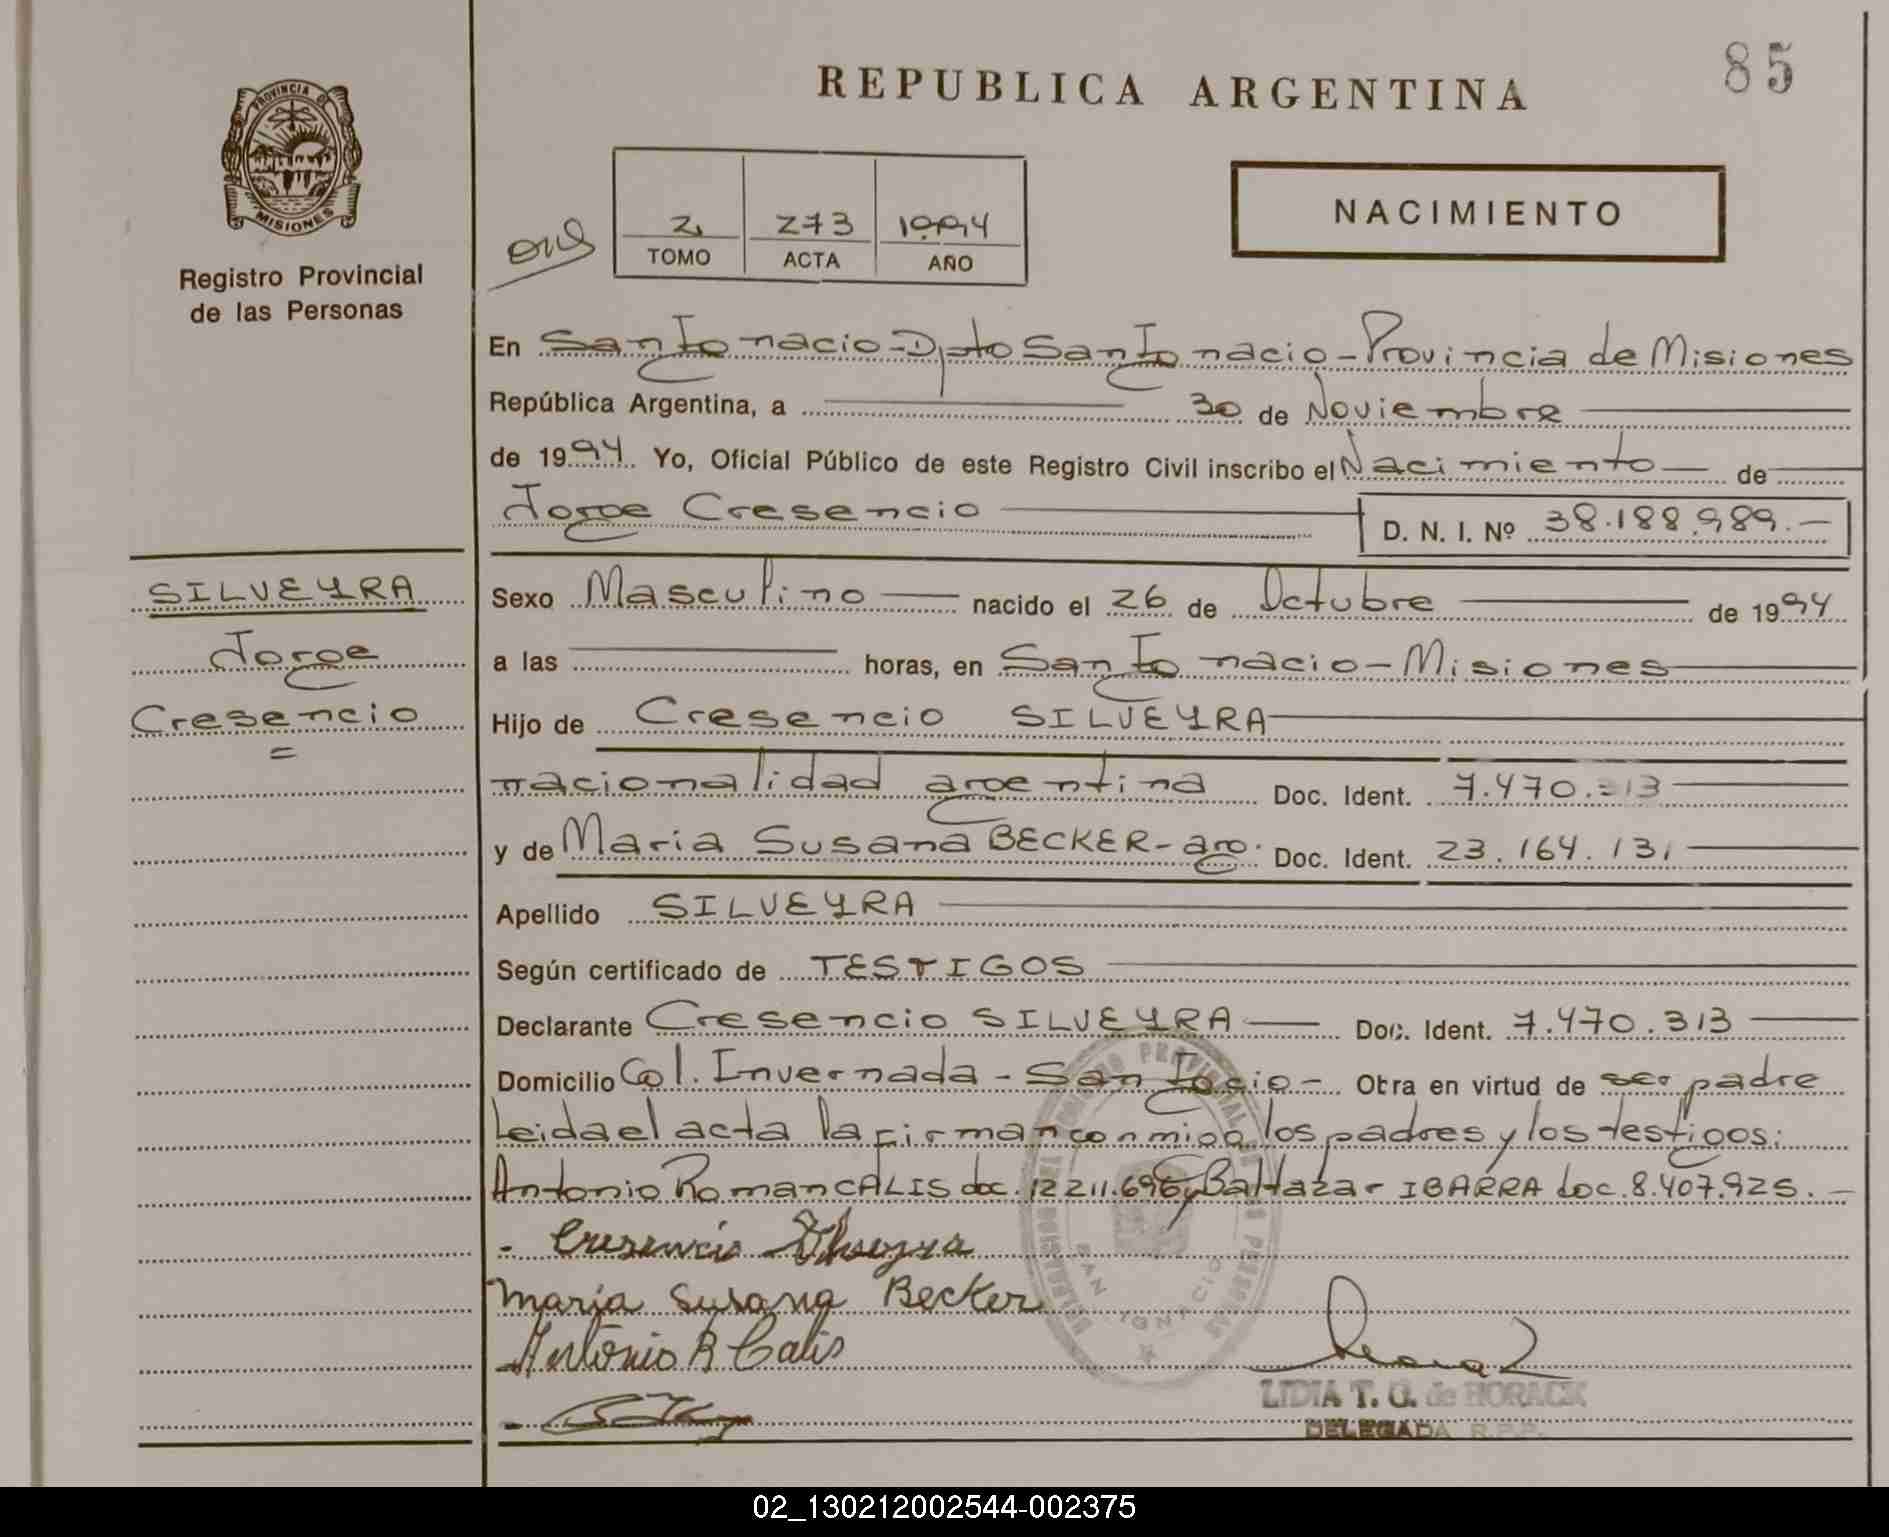 85
REPUBLICA ARGENTINA
PROVINCIA DE
MISIONES
Registro Provincial
de las Personas
2 273 1994
TOMO ACTA AÑO
NACIMIENTO
En San Ignacio - Dpto San Ignacio - Provincia de Misiones
República Argentina, a 30 de Noviembre
de 1994 Yo, Oficial Público de este Registro Civil inscribo el Nacimiento de
Jorge Cresencio D. N. I. Nº 38.188.989.-
SILVEYRA
Jorge
Cresencio
=
Sexo Masculino nacido el 26 de Octubre de 1994
a las horas, en San Ignacio - Misiones
Hijo de Cresencio SILVEYRA
nacionalidad argentina Doc. Ident. 7.470.313
y de Maria Susana BECKER - arg. Doc. Ident. 23.164.131
Apellido SILVEYRA
Según certificado de TESTIGOS
Declarante Cresencio SILVEYRA Doc. Ident. 7.470.313
Domicilio Col. Invernada - San Igcio - Obra en virtud de ser padre
Leida el acta la firman conmigo los padres y los testigos:
Antonio Roman CALIS doc. 12.211.696 y Baltazar IBARRA doc. 8.407.925. -
- Cresencio Silveyra
Maria Susana Becker
Antonio R Calis
DELEGACION DEL REGISTRO PROVINCIAL DE LAS PERSONAS
SAN IGNACIO
LIDIA T. G. de HORACK
DELEGADA R.P.P.
02_130212002544-002375